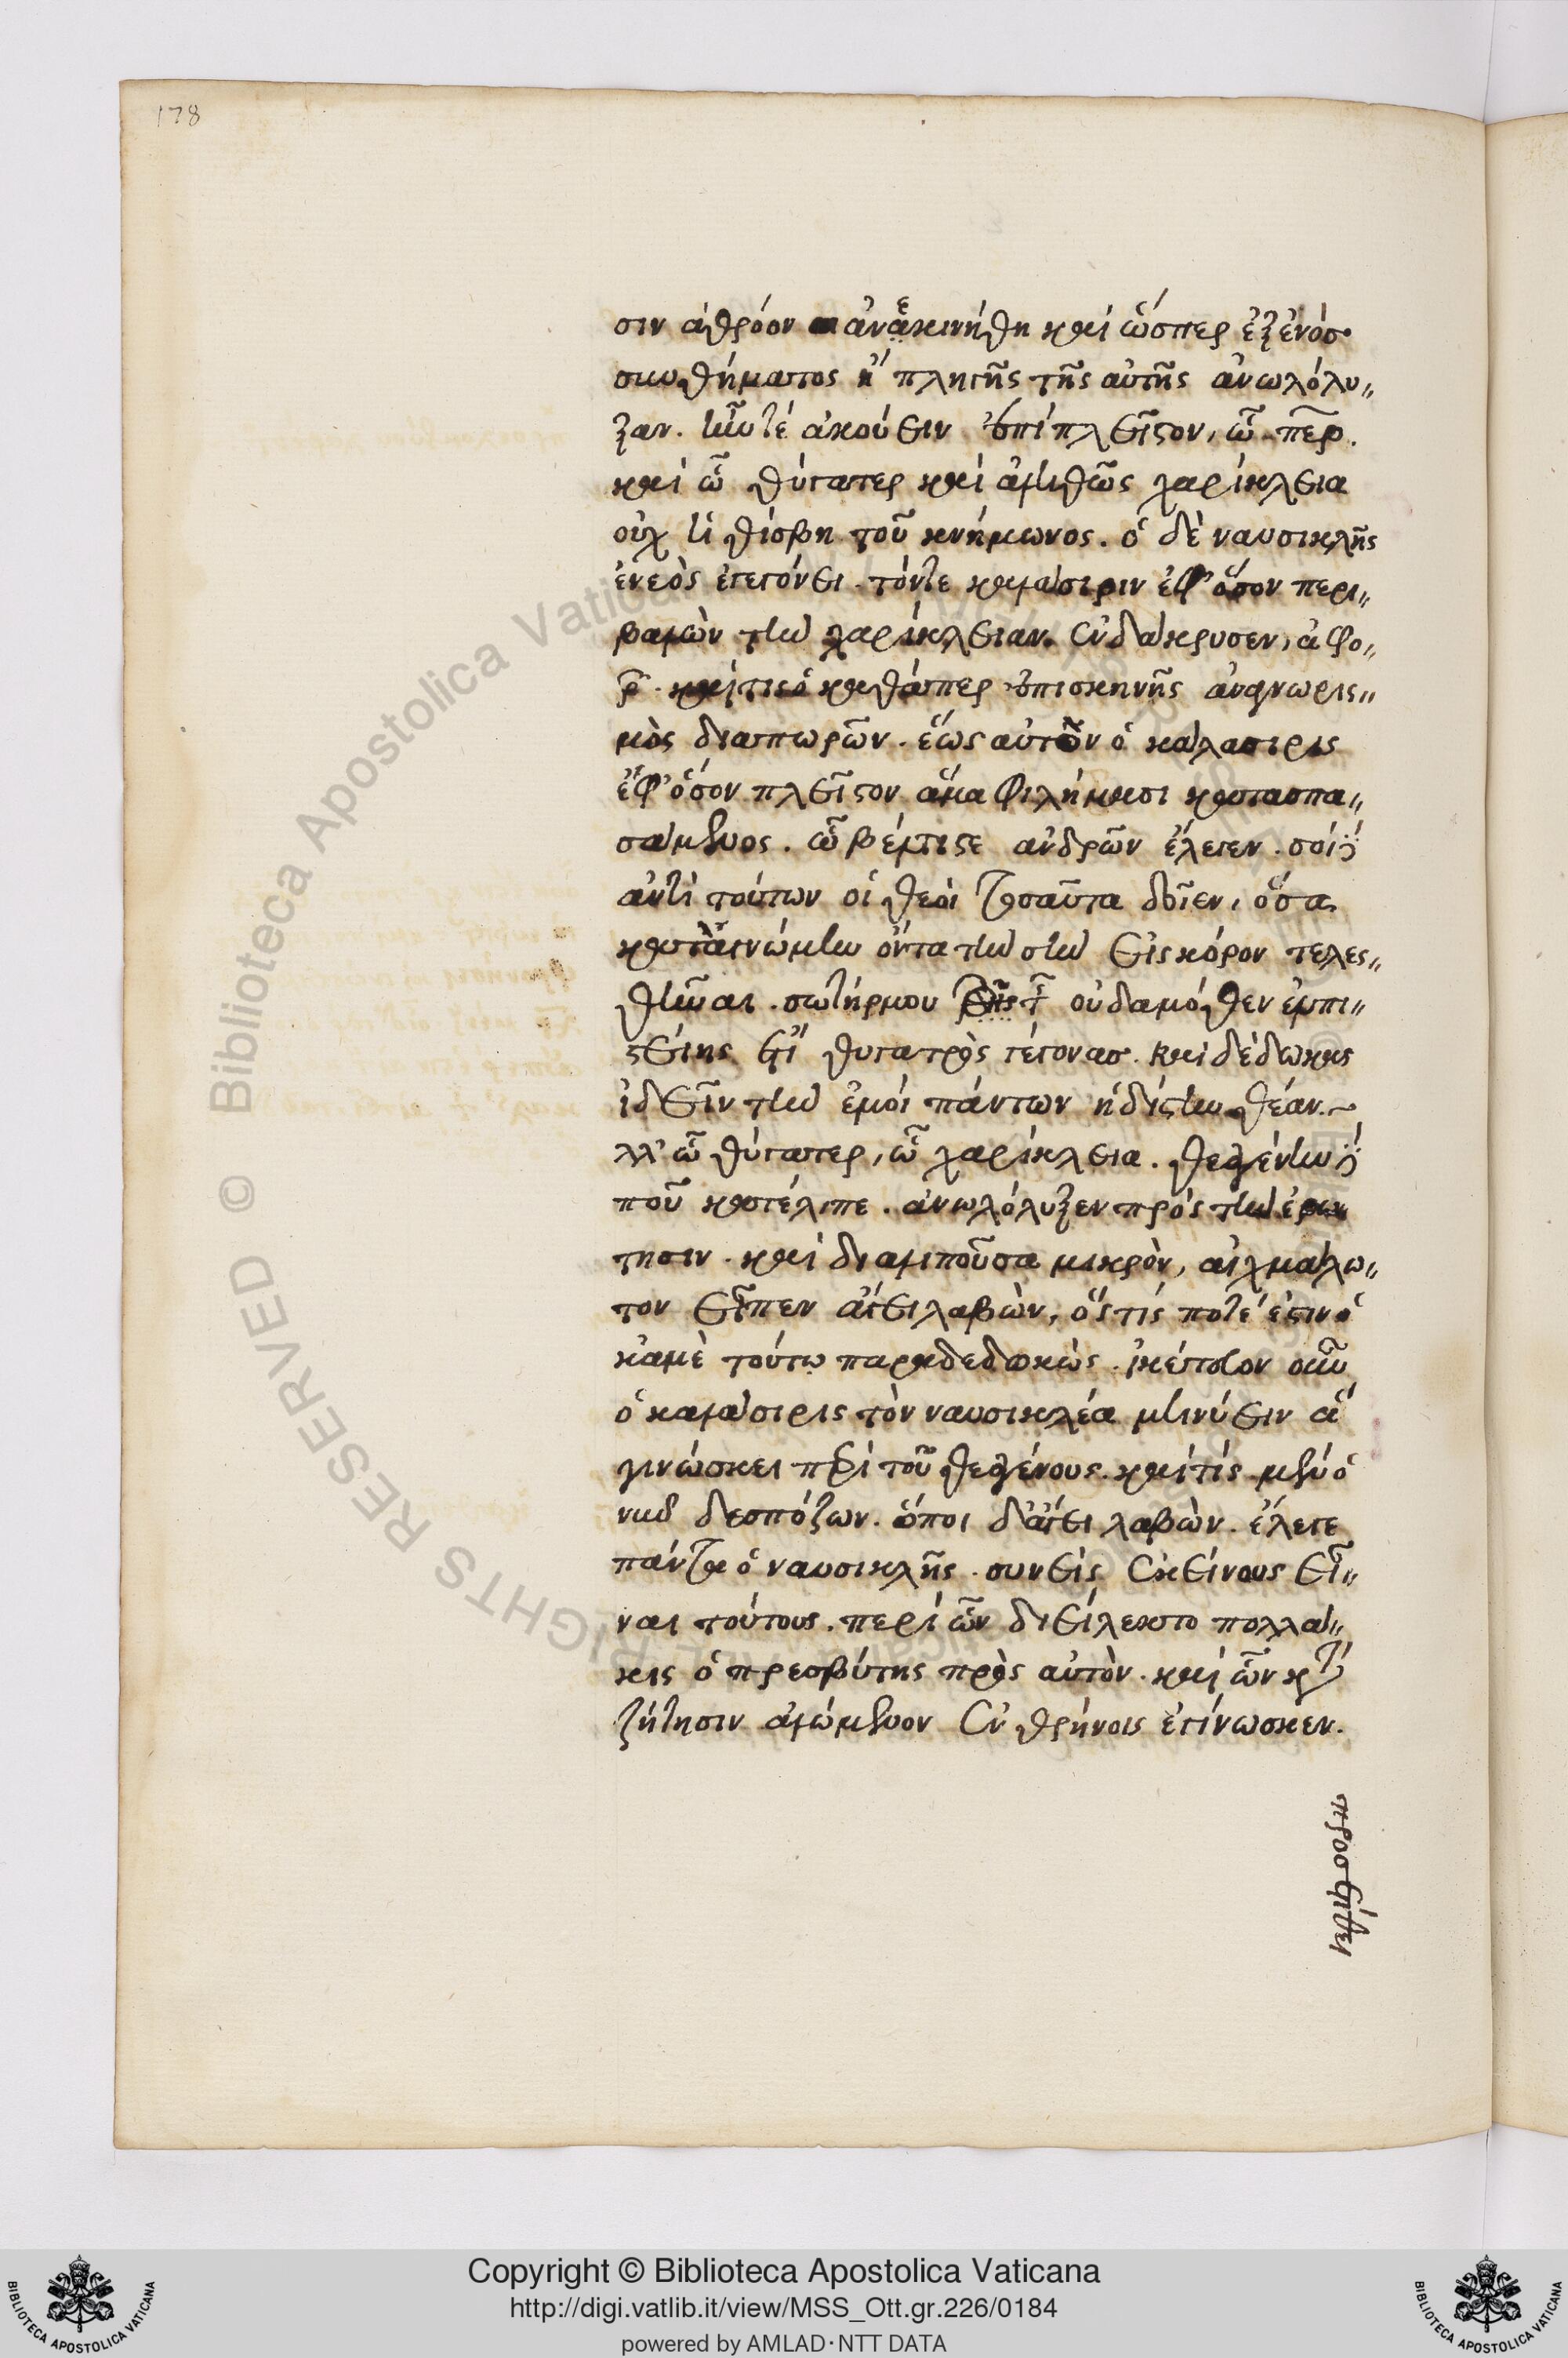 178
σιν ἀθρόον ἀνεκινήθη καὶ ὥσπερ ἐξ ἑνὸσ
συνθήματος ἢ πληγῆς τῆς αὐτῆς ἀνωλόλυ„
ξαν. ἦν τὲ ἀκούειν ἐπὶ πλεῖστον, ὦ περ.
καὶ ὦ θύγατερ καὶ ἀληθῶς χαρίκλεια
οὐχ ἡ θίσβη τοῦ κνήμωνος. ὁ δὲ ναυσικλῆς
ἐνεὸς ἐγεγόνει. τόν τε καλάσιριν ἐφ' ὅσον περι„
βαλὼν τὴν χαρίκλειαν. ἐνδάκρυσεν, ἀφο„
ρ. καὶ τίς ὁ καθάπερ ἐπισκηνῆς ἀναγνωρις„
μὸς διαπορῶν. ἕως αὐτὸν ὁ καλάσιρις
ἐφ' ὅσον πλεῖστον ἅμα φιλήμασι κατασπα„
σάμενος. ὦ βέλτιστε ἀνδρῶν ἔλεγεν. σοὶ δ
ἀντὶ τούτων οἱ θεοὶ τοσαῦτα δοῖεν, ὅσα
κατὰ γνώμην ὄντα τὴν σὴν εἰς κόρον τελες„
θῆναι. σωτήρ μου τῆς οὐδαμόθεν ἐλπι„
στείης ἔτι θυγατρὸς γέγονας. καὶ δέδωκας
ἰδεῖν τὴν ἐμοὶ πάντων ἡδίστην θέαν.
λλ' ὦ θύγατερ, ὦ χαρίκλεια. θεαγένην δ
ποῦ κατέλιπε. ἀνωλόλυξεν πρὸς τὴν ἐρώ
τησιν. καὶ διαλιποῦσα μικρὸν, αἰχμάλω„
τον εἶπεν ἄγει λαβὼν, ὅς τίς ποτέ ἐστιν ὁ
κἀμὲ τούτῳ παραδεδωκὼς. ἱκέτευον οὖν
ὁ καλάσιρις τὸν ναυσικλέα μηνύειν ἃ
γινώσκει περὶ τοῦ θεαγένους. καὶ τίς μὲν ὁ
νῦν δεσπόζων. ὅποι δ' ἄγει λαβὼν. ἔλεγε
πάντα ὁ ναυσικλῆς. συνεὶς ἐκείνους εἶ„
ναι τούτους. περὶ ὧν διείλεκτο πολλά„
κις ὁ πρεσβύτης πρὸς αὐτὸν. καὶ ὧν κατὰ
ζήτησιν ἀλώμενον ἐν θρήνοις ἐγίνωσκεν.
προσετίθει
Copyright © Biblioteca Apostolica Vaticana
http://digi.vatlib.it/view/MSS_Ott.gr.226/0184
powered by AMLAD·NTT DATA